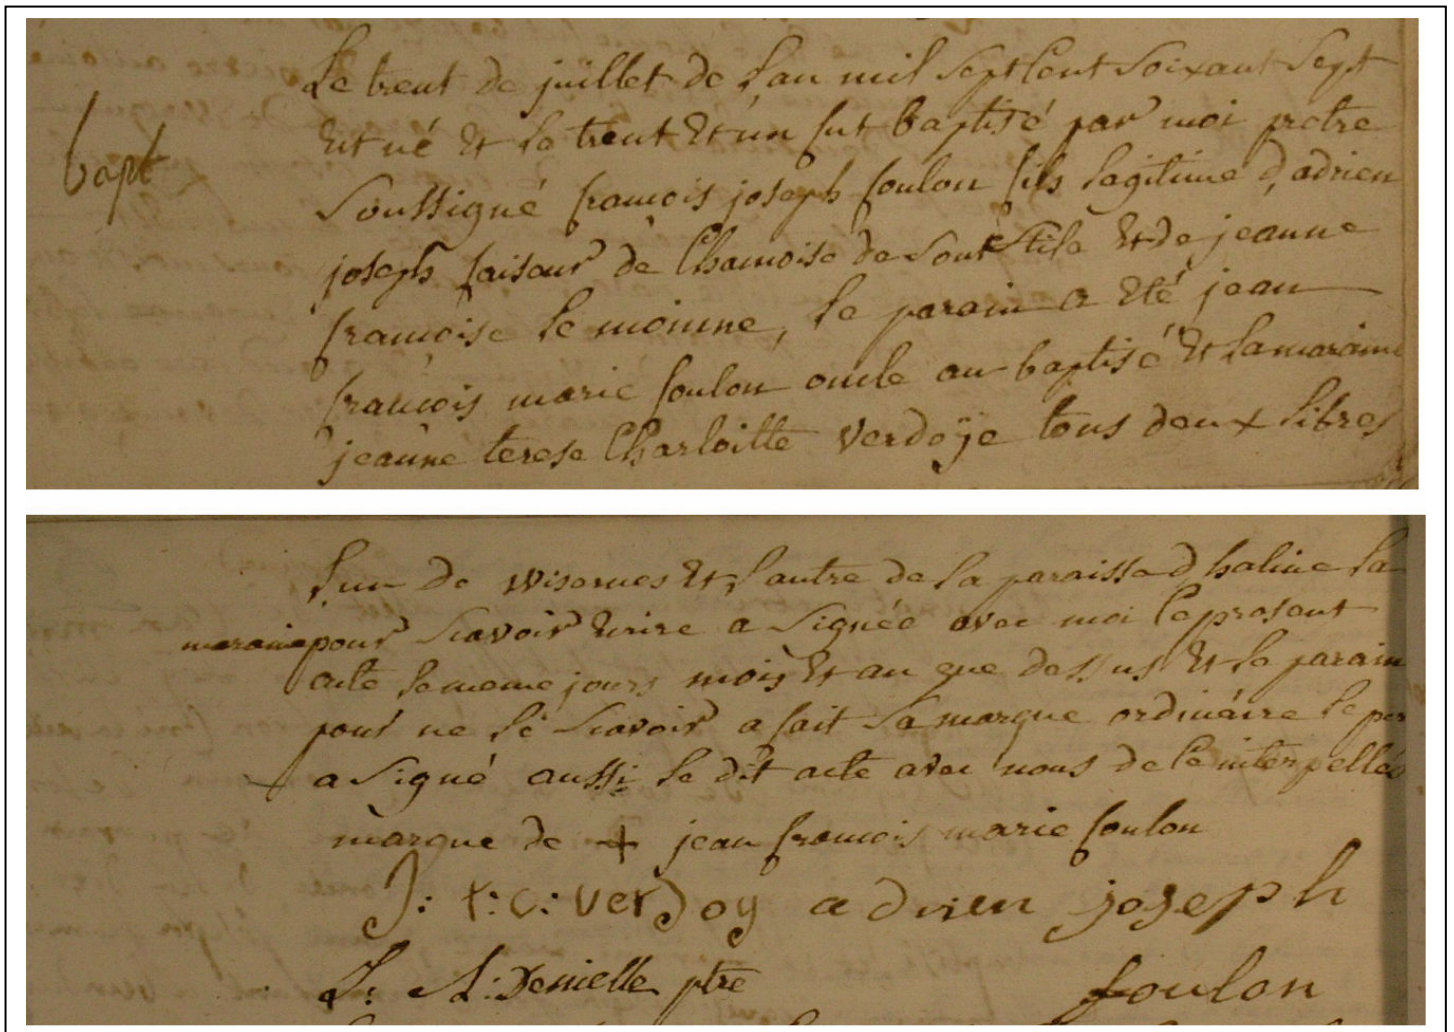 Le trent de juillet de l'an mil sept cent soixant sept
bapt
Est né et le trent et un fut baptisé par moi pretre
soussigné francois joseph foulon fils legitime d'adrien
joseph faiseur de Chamoise de son stile et de jeanne
francoise le moinne, le parain a été jean
francois marie foulon oncle au baptisé et la maraine
jeanne terese Charloitte verdoÿe tous deux libres
l'un de wisernes et l'autre de la paraisse d'haline la
maraine pour scavoir ecrire a signée avec moi le present
acte le meme jours mois et an que dessus et le parain
pour ne le scavoir a fait sa marque ordinaire le per
a signé aussi le dit acte avec nous de ce interpellés
marque de + jean francois marie foulon
J: t: c: verdoy adrien joseph
J: Denielle ptre foulon